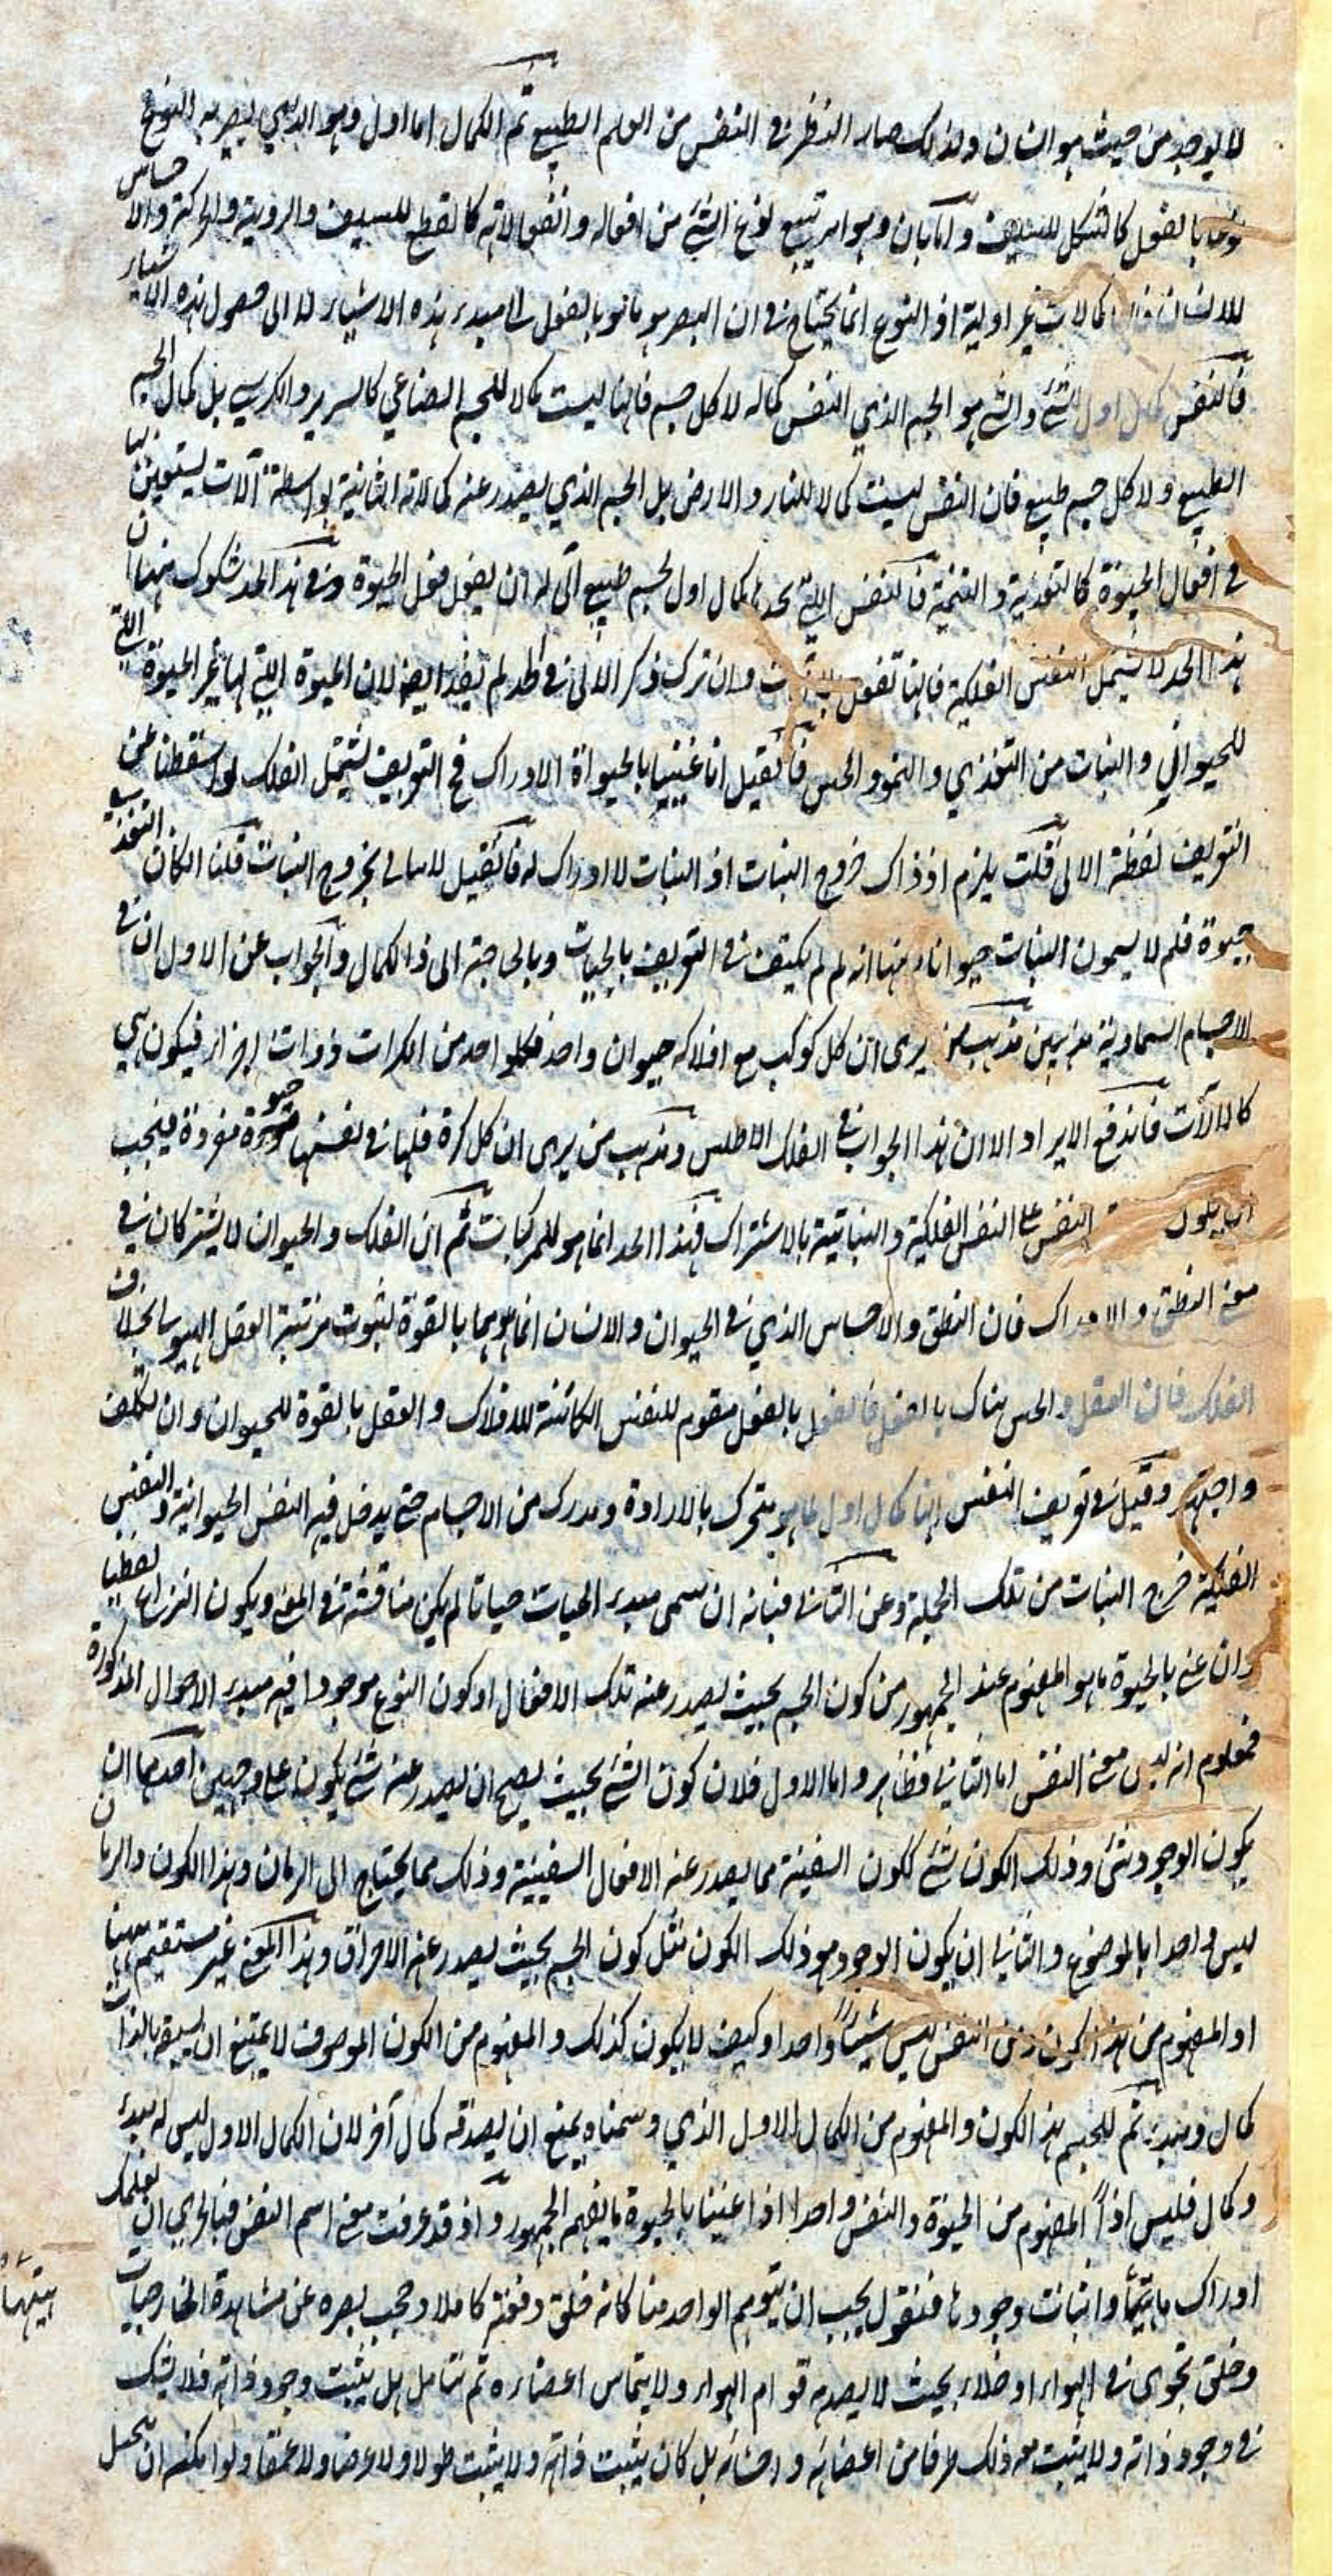 لا يوجد من حيث هو انسان ولذلك صار النظر في النفس من العلم الطبيعي ثم الكمال اما اول وهو الذي يصير به النوع
نوعا بالفعل كالشكل للسيف واما ثان وهو امر يتبع نوع الشئ من افعاله وانفعالاته كالقطع للسيف والروية والحركة والاحساس
للانسان فان الكمالات غير اولية اذ النوع انما يحتاج في ان يصير هو ما هو بالفعل الى مبدء هذه الاشياء له لا الى حصول هذه الاشياء
فالنفس كمال اول لشئ والشئ هو الجسم الذي النفس كماله لا كل جسم فانها ليست كمالا للجسم الصناعي كالسرير والكرسي بل كمال الجسم
الطبيعي ولا كل جسم طبيعي فان النفس ليست كمالا للنار والارض بل الجسم الذي يصدر عنه كمالاته الثانية بواسطة آلات يستعين بها
في افعال الحيوة كالتغذية والتنمية فالنفس التي نحدها كمال اول لجسم طبيعي آلي له ان يفعل فعل الحيوة وفي هذا الحد شكوك منها ان
هذا الحد لا يشمل النفس الفلكية فانها تفعل بلا آلات وان ترك ذكر الآلي في الحد لم يفد ايضا لان الحيوة التي لها غير الحيوة التي
للحيواني والنبات من التغذي والنمو والحس فان قيل انا عنينا بالحيواة الادراك فح التعريف يشمل الفلك لو اسقطنا عن
التعريف لفظة الآلي قلت يلزم اذ ذاك خروج النبات اذ النبات لا ادراك له فان قيل لا نبالي بخروج النبات قلنا ان كان التغذي
حيوة فلم لا يسمون النبات حيوانا ومنها انه لم لم يكتف في التعريف بالحيات وبالحاجة الى ذا الكمال والجواب عن الاول ان في
الاجسام السماوية مذهبين مذهب من يرى ان كل كوكب مع افلاكه حيوان واحد فكل واحد من الكرات ذوات اجزاء فيكون هي
كالآلات فاندفع الايراد الا ان هذا الجواب في الفلك الاطلس ومذهب من يرى ان كل كرة فلها في نفسها حيوة مفردة فيجب
ان يكون النفس على النفس الفلكية والنباتية بالاشتراك فهذا الحد انما هو للمركبات ثم ان الفلك والحيوان لا يشتركان في
معنى النطق والادراك فان النطق والاحساس الذي في الحيوان والانسان انما هو هما بالقوة لثبوت مرتبة العقل الهيولاني بخلاف
الفلك فان العقل والحس هناك بالفعل فالعقل بالفعل مقوم للنفس الكائنة للافلاك والعقل بالقوة للحيوان وان تكلف
واجتهد وقيل في تعريف النفس انها كمال اول لما هو متحرك بالارادة ومدرك من الاجسام حتى يدخل فيه النفس الحيوانية والنفس
الفلكية خرج النبات من تلك الجملة وعن الثاني فبانه ان سمى مبدء الحيات حياتا لم يكن مناقشة في المعنى ويكون النزاع لفظيا
وان عنى بالحيوة ما هو المفهوم عند الجمهور من كون الجسم بحيث يصدر عنه تلك الافعال او كون النوع موجودا فيه مبدء الاحوال المذكورة
فمعلوم انه ليس معنى النفس اما الثاني فظاهر واما الاول فلان كون الشئ بحيث يصح ان يصدر عنه شئ يكون على وجهين احدهما ان
يكون الوجود شئ وذلك الكون شئ ككون السفينة مما يصدر عنه الافعال السفينية وذلك مما يحتاج الى الربان وهذا الكون والربان
ليس واحدا بالموضوع والثاني ان يكون الوجود هو ذلك الكون مثل كون الجسم بحيث يصدر عنه الاحراق وهذا المعنى غير مستقيم ههنا
اذ المفهوم من هذا الكون ومن النفس ليس شيئاً واحدا وكيف لا يكون كذلك والمفهوم من الكون الموصوف لا يمتنع ان يسبقه بالذات
كمال ومبدء ثم للجسم هذ الكون والمفهوم من الكمال الاول الذي وسمناه يمنع ان يسبقه كمال آخر لان الكمال الاول ليس له مبدء
وكمال فليس اذاً المفهوم من الحيوة والنفس واحدا اذا عنينا بالحيوة ما يفهم الجمهور واذ قد عرفت معنى اسم النفس فبالحري ان نعلمك
ادراك ماهيتها واثبات وجودها فنقول يجب ان يتوهم الواحد منا كانه خلق دفعة كاملا وحجب بصره عن مشاهدة الخارجيات
ماهيتها
وخلق يهوى في الهواء او خلاء بحيث لا يصدمه قوام الهواء ولا يتماس اعضاءه ثم نتامل هل يثبت وجود ذاته فلا يشك
في وجود ذاته ولا يثبت مع ذلك طرفا من اعضائه واحشائه بل كان يثبت ذاته ولا يثبت طولا ولا عرضا ولا عمقا ولو امكنه ان يتخيل